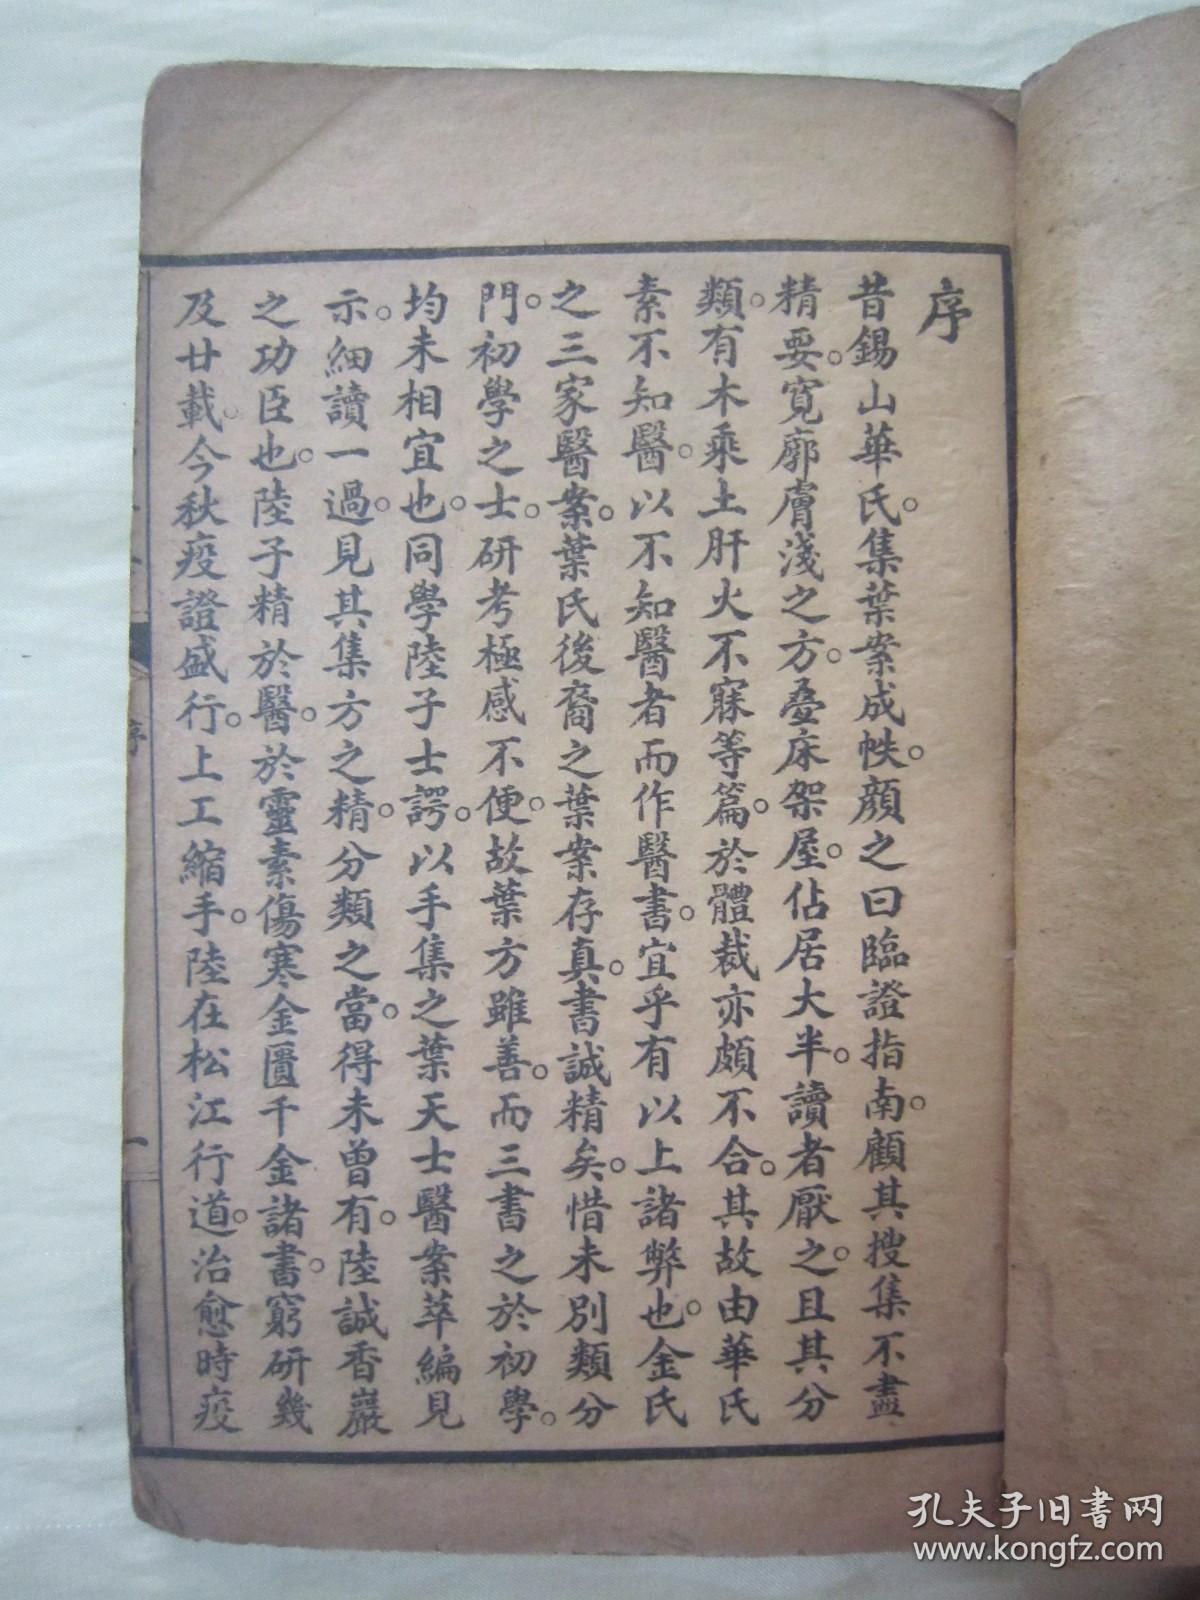 序
昔錫山華氏。集葉案成帙。顏之曰臨證指南。顧其搜集不盡
精要。寬廓膚淺之方。疊床架屋。佔居大半。讀者厭之。且其分
類。有木乘土肝火不寐等篇。於體裁亦頗不合。其故由華氏
素不知醫。以不知醫者而作醫書。宜乎有以上諸弊也。金氏
之三家醫案。葉氏後裔之葉案存真。書誠精矣。惜未別類分
門。初學之士。研考極感不便。故葉方雖善。而三書之於初學。
均未相宜也。同學陸子士諤。以手集之葉天士醫案萃編見
示。細讀一過。見其集方之精。分類之當。得未曾有。陸誠香巖
之功臣也。陸子精於醫。於靈素傷寒金匱千金諸書。窮研幾
及廿載。今秋疫證盛行。上工縮手。陸在松江行道。治愈時疫
序
一
孔夫子旧书网
www.kongfz.com